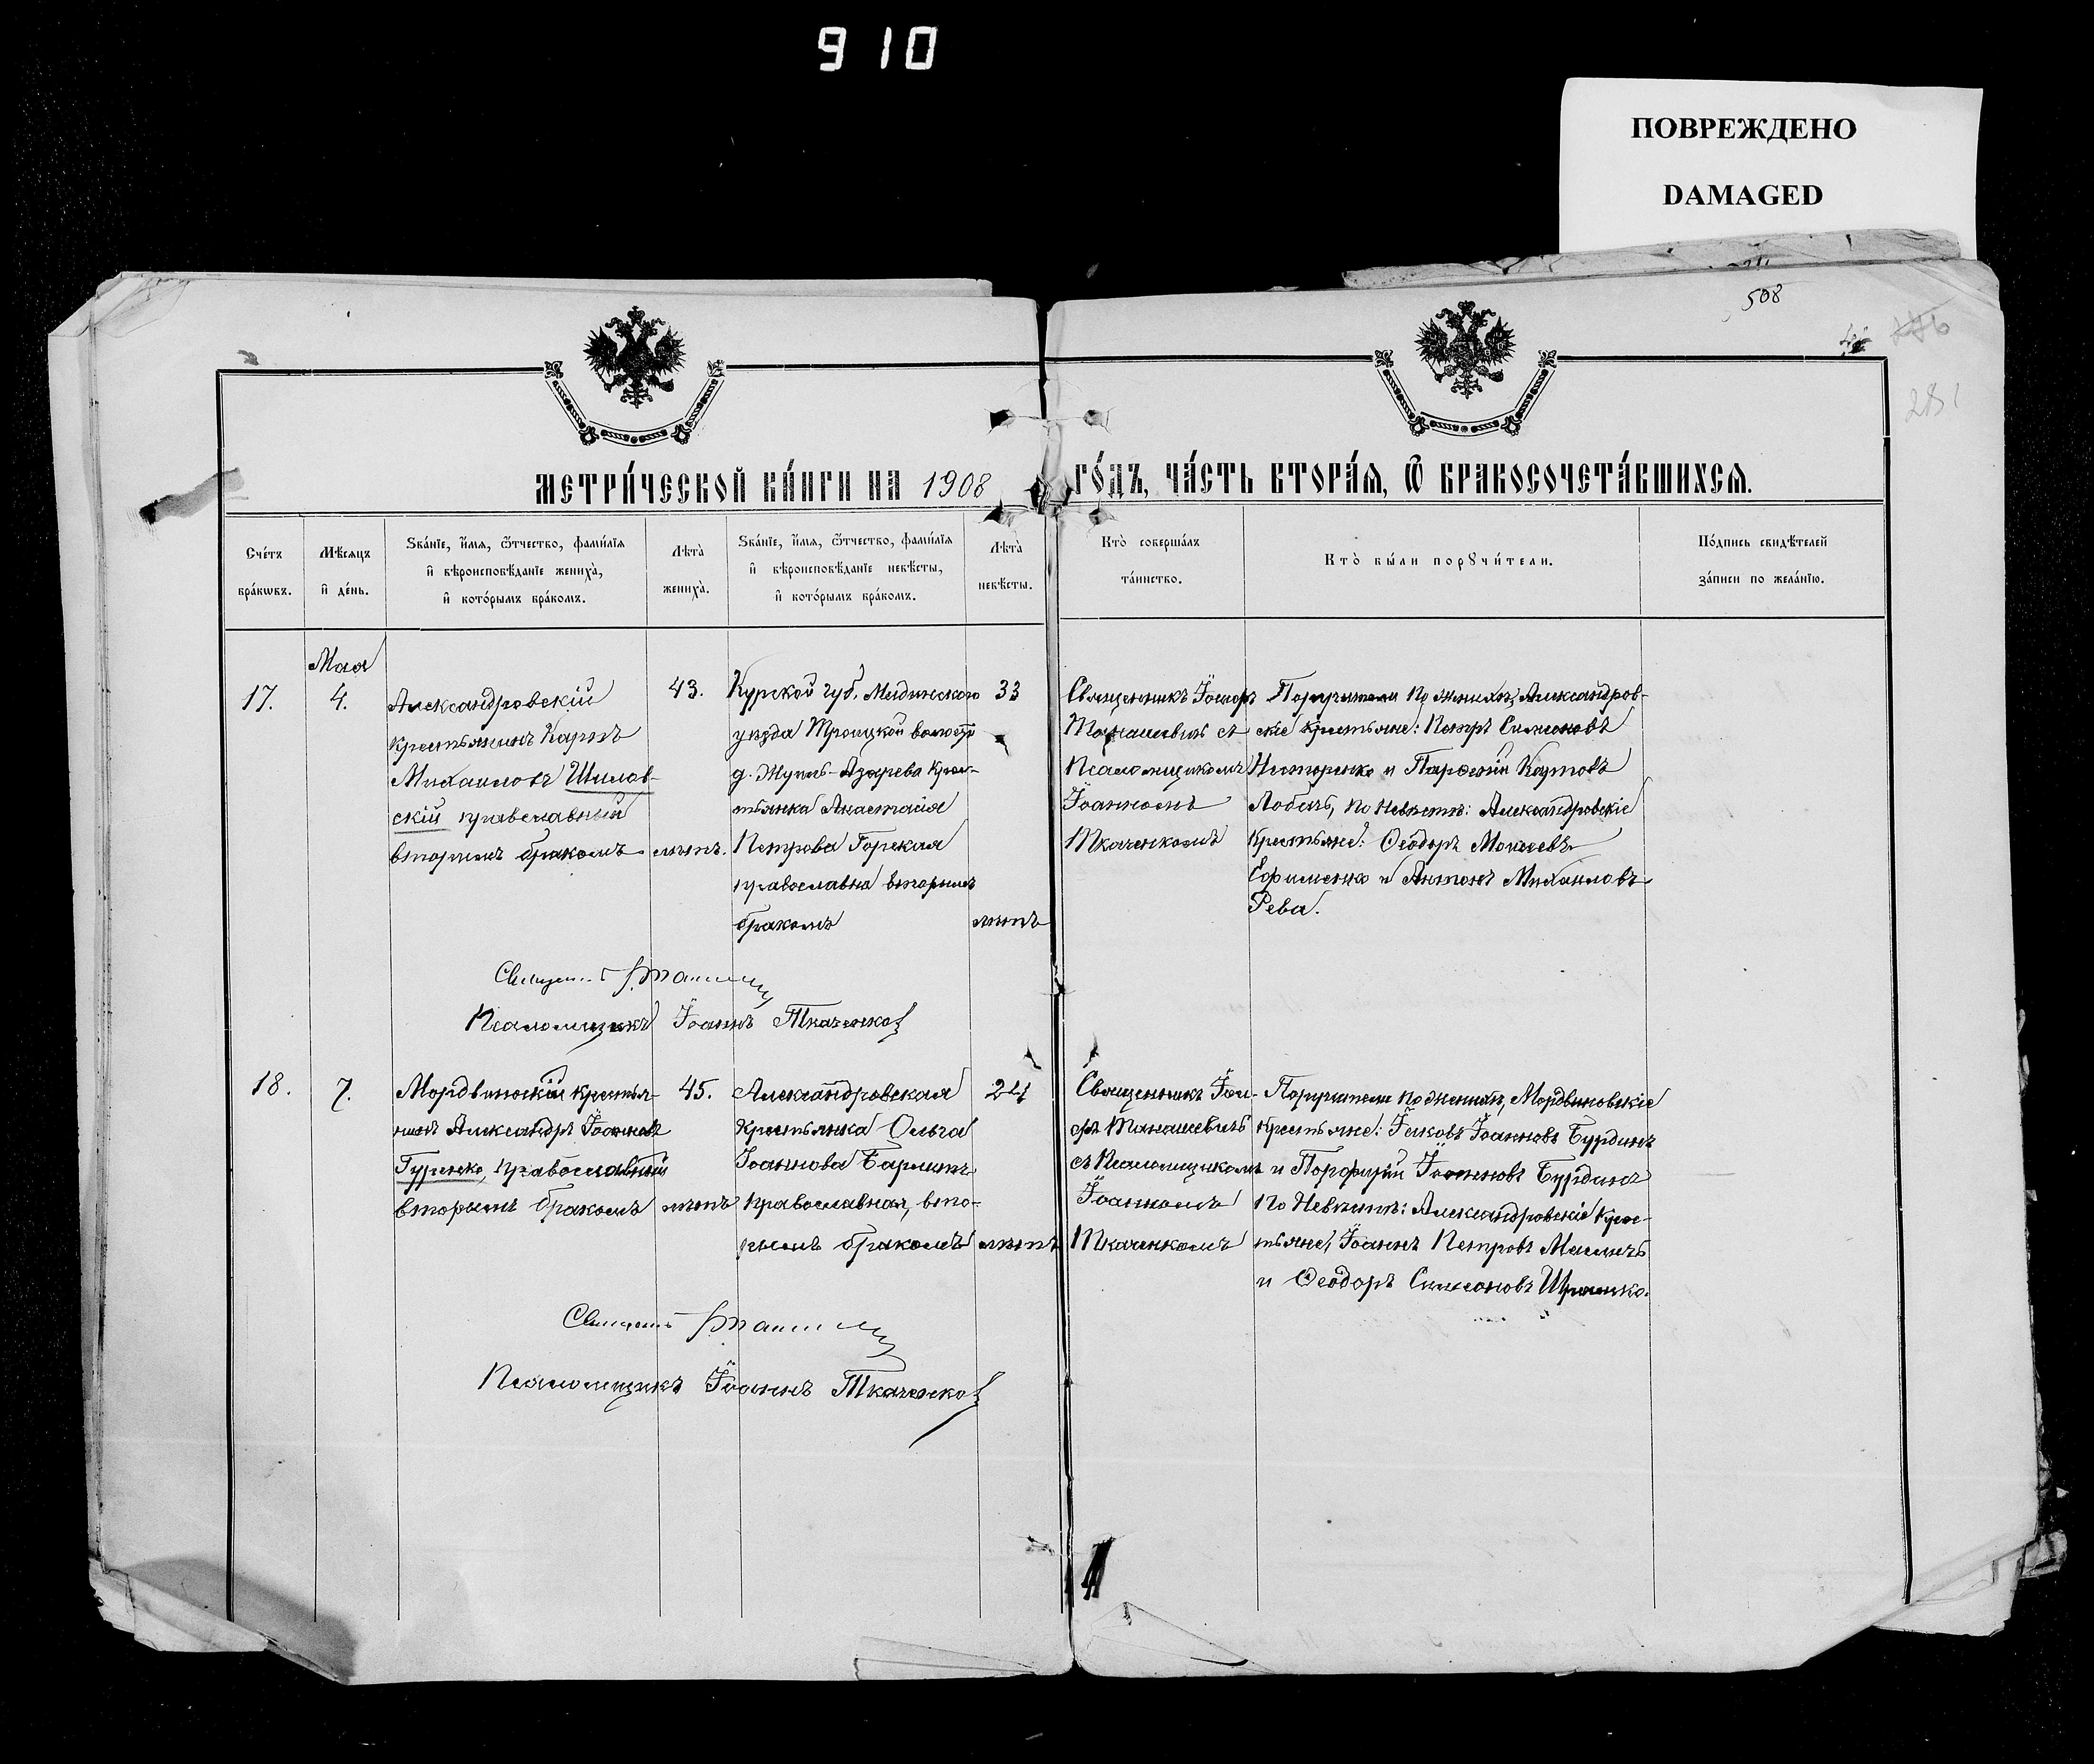 910
ПОВРЕЖДЕНО
DAMAGED
508
281
МЕТРИ́ЧЕСКОЙ КНИ́ГИ НА 1908 ГО́ДЪ, ЧА́СТЬ ВТОРА́Я, Ѿ БРАКОСОЧЕТА́ВШИХСЯ.
Сче́тъ
бра́кωвъ.
Мѣ́сяцъ
и҆ де́нь.
Зва́нїе, и҆́мя, ѻ҆́тчество, фами́лїя
и҆ вѣроисповѣ́данїе жениха̀,
и҆ кото́рымъ бра́комъ.
Лѣта̀
жениха̀.
Зва́нїе, и҆́мя, ѻ҆́тчество, фами́лїя
и҆ вѣроисповѣ́данїе невѣ́сты,
и҆ кото́рымъ бра́комъ.
Лѣта̀
невѣ́сты.
Кто̀ соверша́лъ
та́инство.
Кто̀ бы́ли порꙋчи́тели.
По́дпись свидѣ́телей
за́писи по жела́нїю.
17.
Мая
4.
Александровскій
крестьянинъ Карпъ
Михаиловъ Шилов-
скій православный
вторымъ бракомъ
43.
лѣтъ.
Курской губ.
уѣзда Троицкой волости
д. крес-
тьянка Анастасія
Петрова Горская
православна вторымъ
бракомъ
33
лѣтъ
Священникъ Іосифъ
Танашевичъ съ
Псаломщикомъ
Іоанномъ
Ткаченкомъ
Поручители По женихѣ, Александров-
скіе крестьяне: Петръ Симеоновъ
Нестеренко и Парфеній Карповъ
Лобачъ, по Невѣстѣ: Александровскіе
Крестьяне: Ѳеодоръ Моисеевъ
Ефименко и Антонъ Михаиловъ
Рева.
Священ
Псаломщикъ Іоаннъ Ткаченко
18.
7.
Мордвиновскій крестья-
нинъ Александръ Іоанновъ
Гуренко, православный
вторымъ бракомъ
45.
лѣтъ
Александровская
крестьянка Ольга
Іоаннова
православная, вто-
рымъ бракомъ
24
лѣтъ
Священникъ Іоси-
фъ Танашевичъ
съ Псаломщикомъ
Іоанномъ
Ткаченкомъ
Поручители по женихѣ, Мордвиновскіе
крестьяне: Іаковъ Іоанновъ Бурдинъ
и Порфирій Іоанновъ Бурдинъ
По Невѣстѣ: Александровскіе Крес-
тьяне, Іоаннъ Петровъ
и Ѳеодоръ Симеоновъ
Священ
Псаломщикъ Іоаннъ Ткаченко